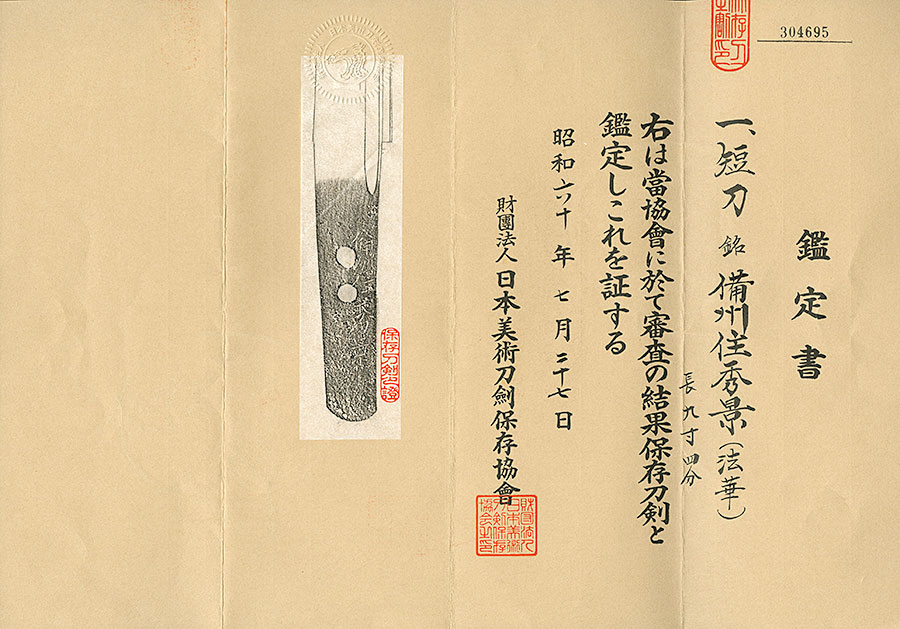 304695
鑑定書
一、短刀 銘 備州住秀景（法華）
長九寸四分
右は當協會に於て審査の結果保存刀剣と
鑑定しこれを証する
昭和六十年七月二十七日
財團法人 日本美術刀劍保存協會
財団法人日本美術刀剣保存協会之印
保存刀剣之證